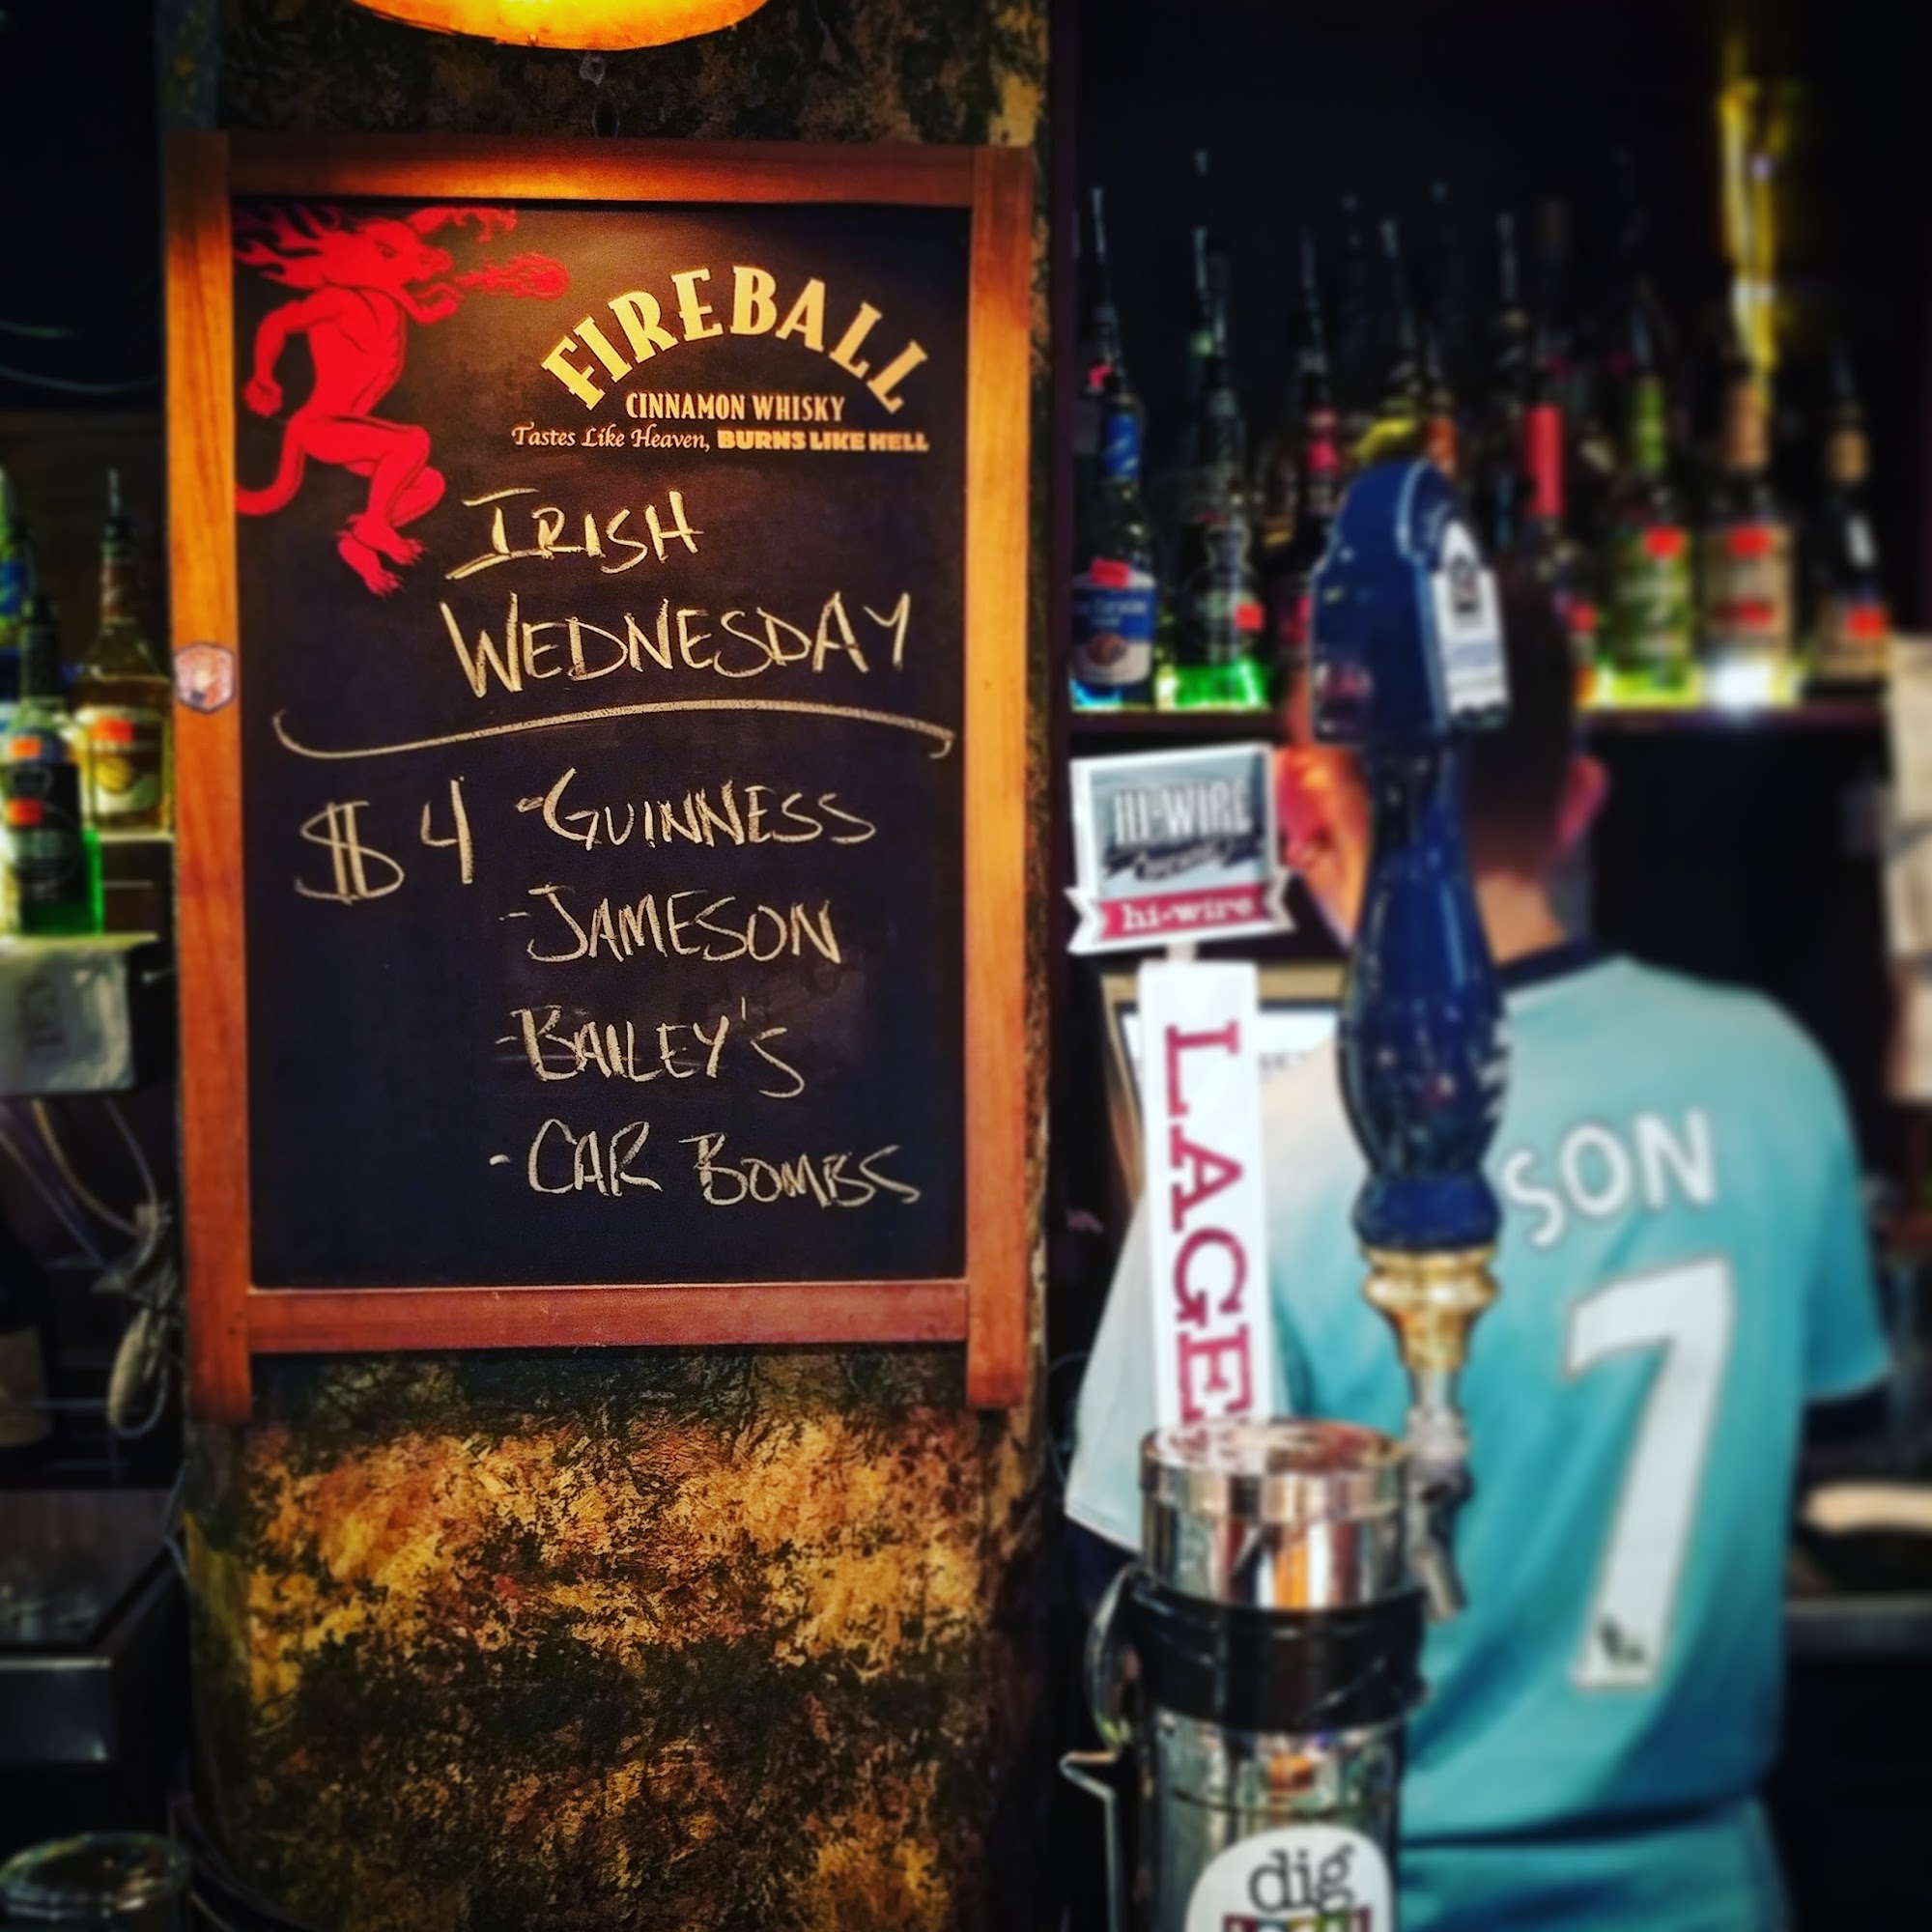 FIREBALL
CINNAMON WHISKY
Tastes Like Heaven, BURNS LIKE HELL
IRISH
WEDNESDAY
$4 -GUINNESS
-JAMESON
-BAILEY'S
-CAR BOMBS
HI-WIRE
hi-wire
LAGER
SON
7
dig